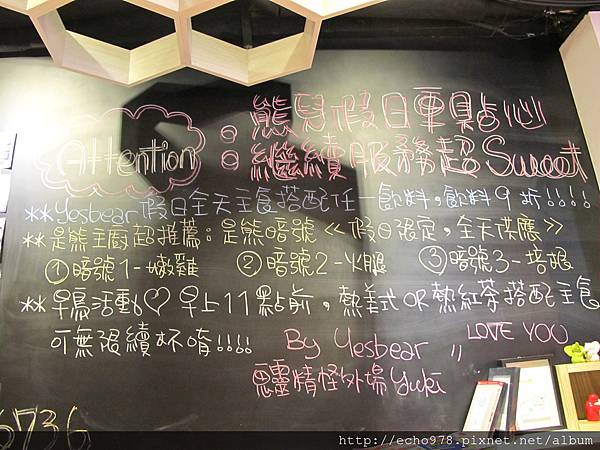 Attention : 熊兒假日軍點心
: 繼續服務超Sweet
**Yesbear假日全天主食搭配任一飲料,飲料9折!!!!
**是熊主廚超推薦:是熊暗號《假日限定,全天供應》
①暗號1-嫩雞 ②暗號2-火腿 ③暗號3-培根
**早鳥活動♡早上11點前,熱美式OR熱紅茶搭配主食
可無限續杯唷!!!!
By Yesbear
LOVE YOU
惡靈精怪外場Yuki
6736
http://echo978.pixnet.net/album